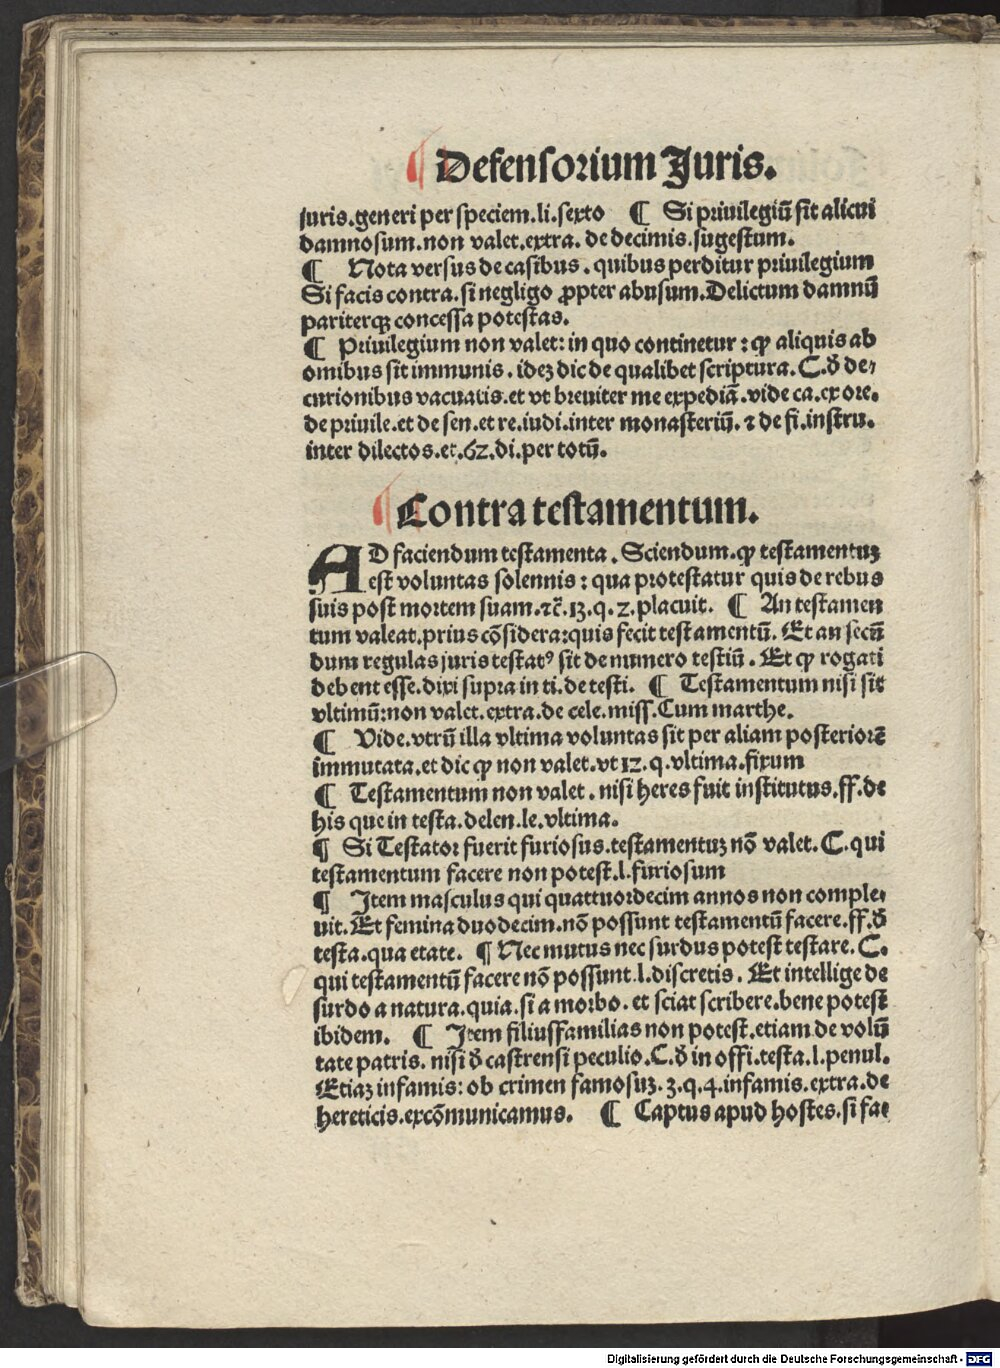 ¶ Defensorium Juris.
juris.generi per speciem.li.sexto ¶ Si priuilegiū sit alicui
damnosum.non valet.extra. de decimis.sugestum.
¶ Nota versus de casibus. quibus perditur priuilegium
Si facis contra.si negligo ꝓpter abusum.Delictum damnū
pariterqꝫ concessa potestas.
¶ Priuilegium non valet: in quo continetur: ꝙ aliquis ab
omibus sit immunis. ideꝫ dic de qualibet scriptura. C.ð de⸗
curionibus vacuatis.et vt breuiter me expediā.vide ca.ex ore.
de priuile.et de sen.et re.iudi.inter monasteriū. ⁊ de fi.instru.
inter dilectos.et.62.di.per totū.
¶ Contra testamentum.
AD faciendum testamenta. Sciendum.ꝙ testamentuꝫ
est voluntas solennis: qua protestatur quis de rebus
suis post mortem suam.⁊c̄.13.q.2.placuit. ¶ An testamen
tum valeat.prius cōsidera:quis fecit testamentū. Et an secū
dum regulas juris testatꝰ sit de numero testiū. Et ꝙ rogati
debent esse.dixi supra in ti.de testi. ¶ Testamentum nisi sit
vltimū:non valet.extra.de cele.miss.Cum marthe.
¶ Vide.vtrū illa vltima voluntas sit per aliam posteriorē
immutata.et dic ꝙ non valet.vt 12.q.vltima.fixum
¶ Testamentum non valet. nisi heres fuit institutus.ff.de
his que in testa.delen.le.vltima.
¶ Si Testator fuerit furiosus.testamentuꝫ nō valet. C.qui
testamentum facere non potest.l.furiosum
¶ Item masculus qui quattuordecim annos non comple⸗
uit. Et femina duodecim.nō possunt testamentū facere.ff.ð
testa.qua etate. ¶ Nec mutus nec surdus potest testare. C.
qui testamentū facere nō possunt.l.discretis. Et intellige de
surdo a natura.quia.si a morbo. et sciat scribere.bene potest
ibidem. ¶ Item filiusfamilias non potest.etiam de volū
tate patris. nisi ð castrensi peculio.C.ð in offi.testa.l.penul.
Etiaꝫ infamis: ob crimen famosuꝫ.3.q.4.infamis.extra.de
hereticis.excōmunicamus. ¶ Captus apud hostes.si fac
Digitalisierung gefördert durch die Deutsche Forschungsgemeinschaft - DFG